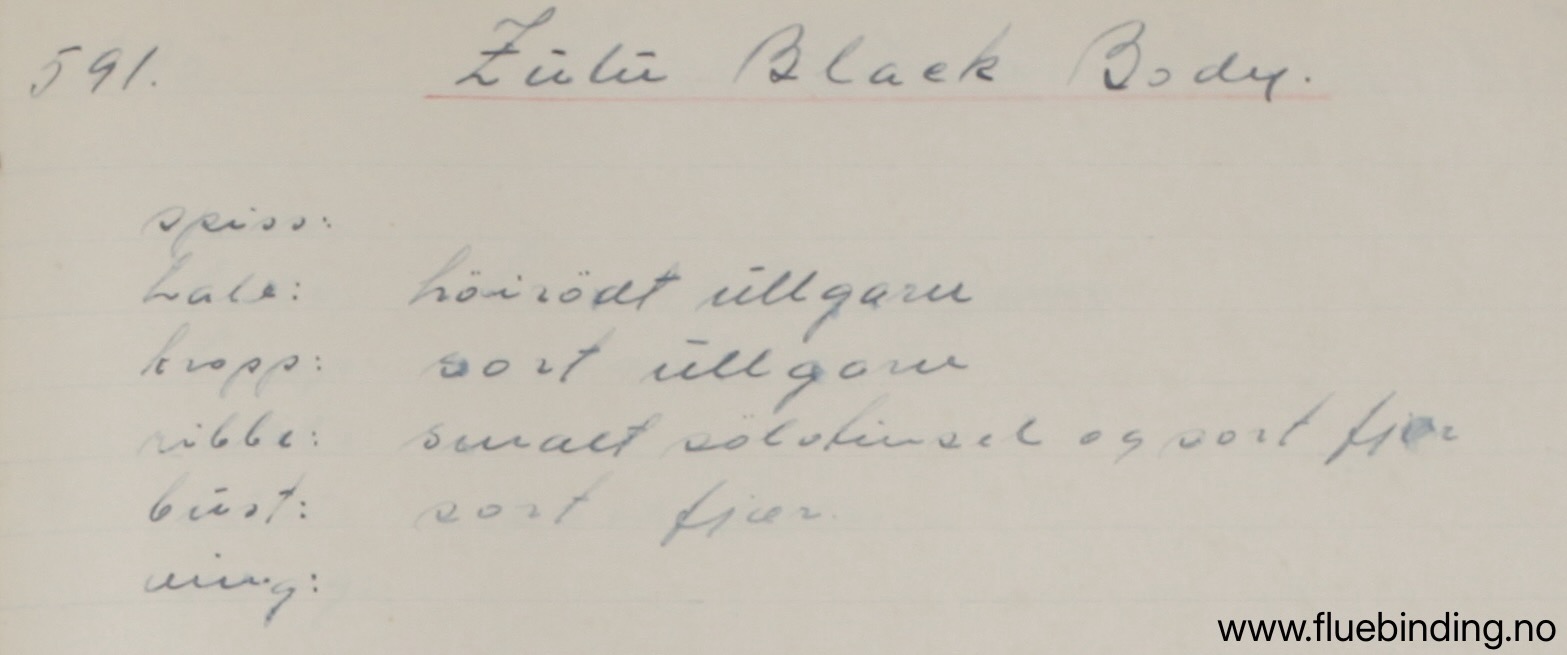 591. Zülü Black Body.
spiss:
hale: höirödt üllgarn
kropp: sort üllgarn
ribbe: smalt sölvtinsel og sort fjær
büst: sort fjær.
ving:
www.fluebinding.no